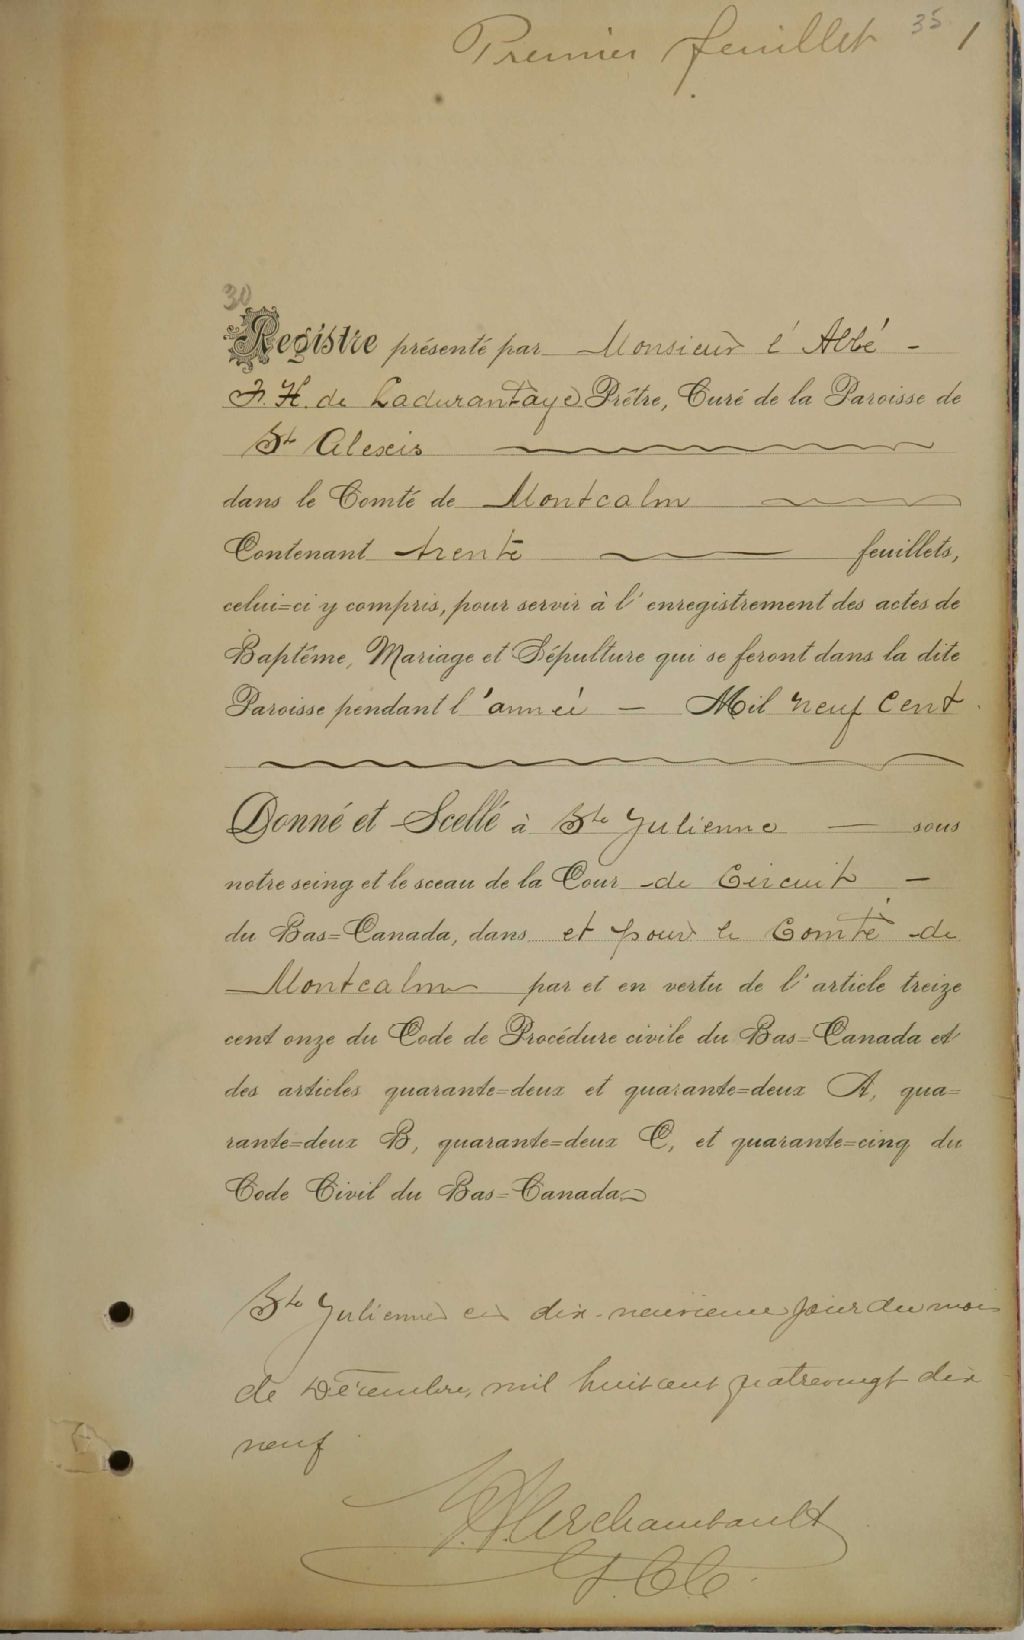 Premier feuillet 35 1
30
Registre présenté par Monsieur l'Abbé -
F. H. de Ladurantaye Prêtre, Curé de la Paroisse de
St Alexis
dans le Comté de Montcalm
Contenant trente feuillets,
celui=ci y compris, pour servir à l'enregistrement des actes de
Baptême, Mariage et Sépulture qui se feront dans la dite
Paroisse pendant l'année - Mil neuf Cent
Donné et Scellé à Ste Julienne - sous
notre seing et le sceau de la Cour de Circuit -
du Bas=Canada, dans et pour le Comté de
Montcalm par et en vertu de l'article treize
cent onze du Code de Procédure civile du Bas=Canada et
des articles quarante=deux et quarante=deux A, qua=
rante=deux B, quarante=deux C, et quarante=cinq du
Code Civil du Bas=Canada
Ste Julienne ce dix-neuvieme jour du mois
de Décembre, mil huit cent quatrevingt dix
neuf
Archambault